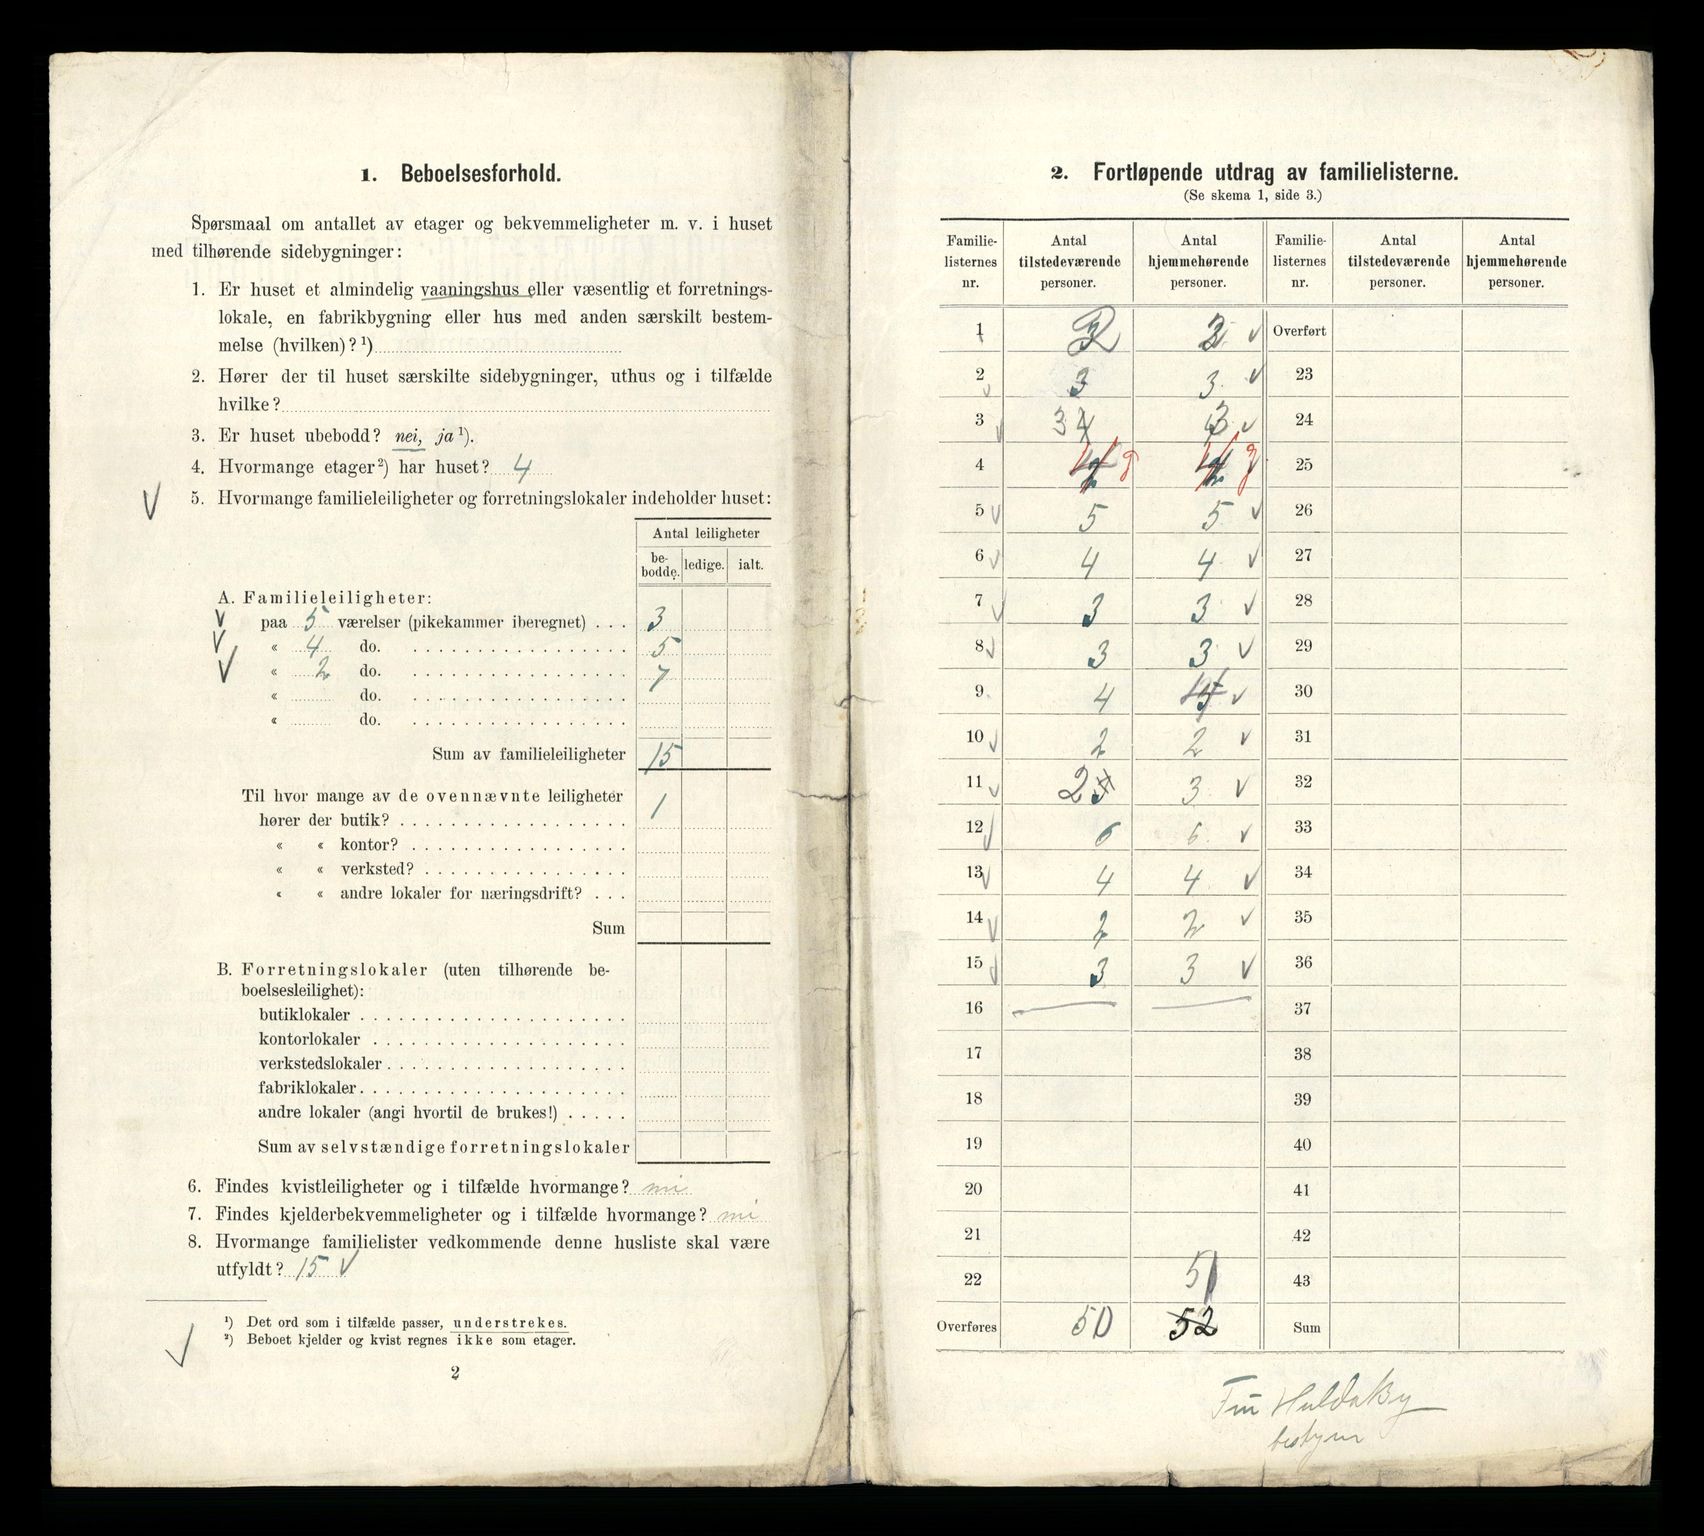 1. Beboelsesforhold.
Spørsmaal om antallet av etager og bekvemmeligheter m. v. i huset
med tilhørende sidebygninger:
1. Er huset et almindelig vaaningshus eller væsentlig et forretnings-
lokale, en fabrikbygning eller hus med anden særskilt bestem-
melse (hvilken)? ¹)
2. Hører der til huset særskilte sidebygninger, uthus og i tilfælde
hvilke?
3. Er huset ubebodd? nei, ja ¹).
4. Hvormange etager ²) har huset? 4
5. Hvormange familieleiligheter og forretningslokaler indeholder huset:
Antal leiligheter
be-
bodde. ledige. ialt.
A. Familieleiligheter:
paa 5 værelser (pikekammer iberegnet) . . . 3
« 4 do. 5
« 2 do. 7
« do.
« do.
Sum av familieleiligheter 15
Til hvor mange av de ovennævnte leiligheter
hører der butik? 1
« « kontor?
« « verksted?
« « andre lokaler for næringsdrift?
Sum
B. Forretningslokaler (uten tilhørende be-
boelsesleilighet):
butiklokaler
kontorlokaler
verkstedslokaler
fabriklokaler
andre lokaler (angi hvortil de brukes!)
Sum av selvstændige forretningslokaler
6. Findes kvistleiligheter og i tilfælde hvormange? nei
7. Findes kjelderbekvemmeligheter og i tilfælde hvormange? nei
8. Hvormange familielister vedkommende denne husliste skal være
utfyldt? 15
¹) Det ord som i tilfælde passer, understrekes.
²) Beboet kjelder og kvist regnes ikke som etager.
2
2. Fortløpende utdrag av familielisterne.
(Se skema 1, side 3.)
Familie-listernes nr. Antal tilstedeværende personer. Antal hjemmehørende personer. Familie-listernes nr. Antal tilstedeværende personer. Antal hjemmehørende personer.
1 Overført
2 3 3 23
3 3 3 24
4 25
5 5 5 26
6 4 4 27
7 3 3 28
8 3 3 29
9 4 30
10 2 2 31
11 2 3 32
12 6 6 33
13 4 4 34
14 2 2 35
15 3 3 36
16 37
17 38
18 39
19 40
20 41
21 42
22 51 43
Overføres 50 52 Sum
Hulda By
bestyrer